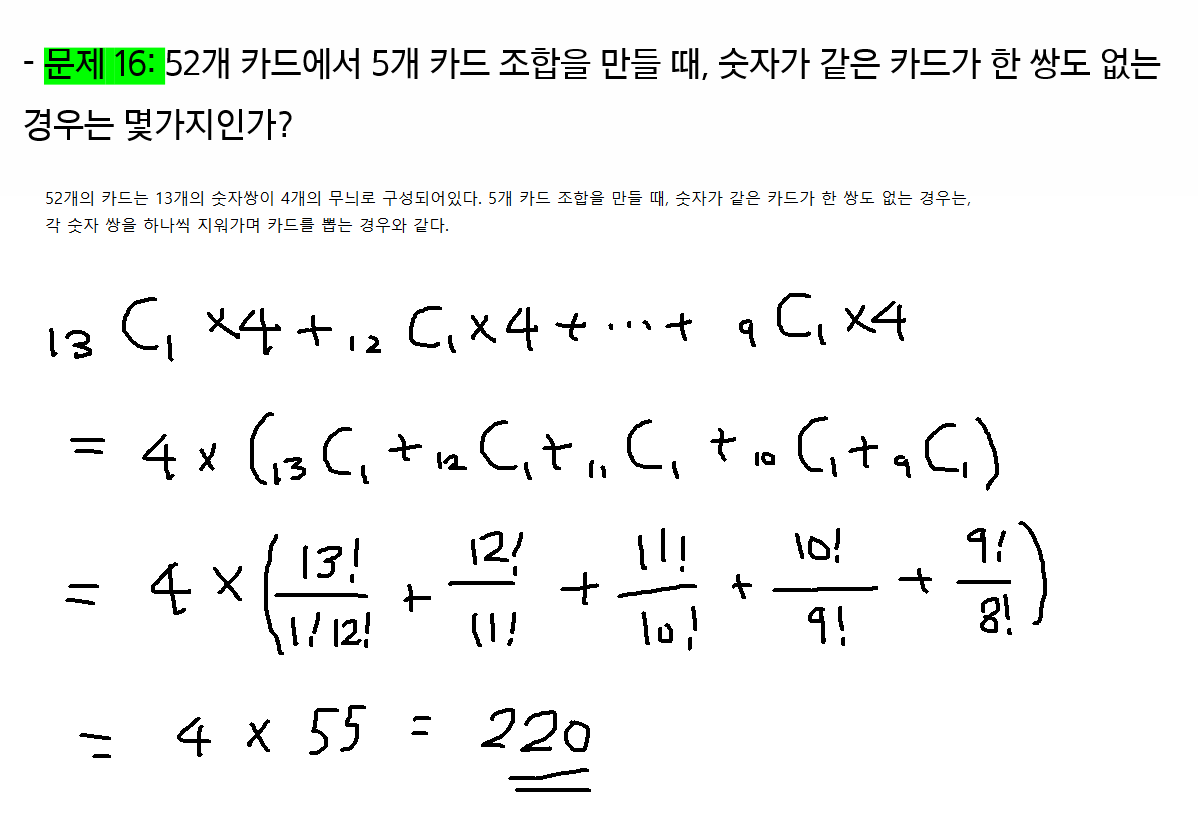 - 문제 16: 52개 카드에서 5개 카드 조합을 만들 때, 숫자가 같은 카드가 한 쌍도 없는
경우는 몇가지인가?
52개의 카드는 13개의 숫자쌍이 4개의 무늬로 구성되어있다. 5개 카드 조합을 만들 때, 숫자가 같은 카드가 한 쌍도 없는 경우는,
각 숫자 쌍을 하나씩 지워가며 카드를 뽑는 경우와 같다.
₁₃C₁ ×4 + ₁₂C₁ ×4 + ... + ₉C₁ ×4
= 4 × (₁₃C₁ + ₁₂C₁ + ₁₁C₁ + ₁₀C₁ + ₉C₁)
= 4 × (13!/1!12! + 12!/11! + 11!/10! + 10!/9! + 9!/8!)
= 4 × 55 = 220